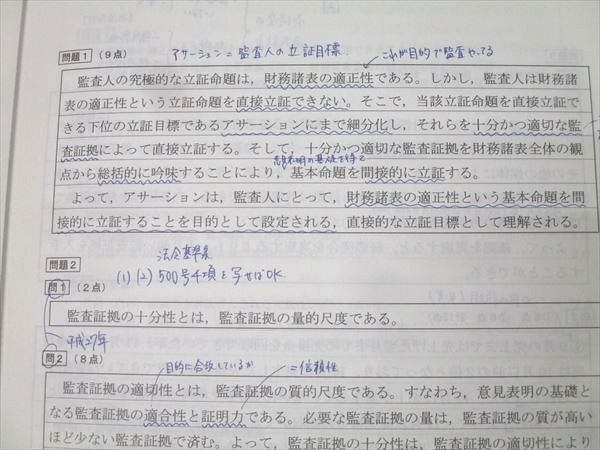 問題1 (9点) アサーション=監査人の立証目標 これが目的で監査やってる
監査人の究極的な立証命題は，財務諸表の適正性である。しかし，監査人は財務諸
表の適正性という立証命題を直接立証できない。そこで，当該立証命題を直接立証で
きる下位の立証目標であるアサーションにまで細分化し，それらを十分かつ適切な監
査証拠によって直接立証する。そして，十分かつ適切な監査証拠を財務諸表全体の観
意見表明の基礎を得て
点から総括的に吟味することにより，基本命題を間接的に立証する。
よって，アサーションは，監査人にとって，財務諸表の適正性という基本命題を間
接的に立証することを目的として設定される，直接的な立証目標として理解される。
問題2 法令基準集
(1)(2)500号4項を写せばOK
問1 (2点)
監査証拠の十分性とは，監査証拠の量的尺度である。
平成27年
問2 (8点) 目的に合致しているか =信頼性
監査証拠の適切性とは，監査証拠の質的尺度である。すなわち，意見表明の基礎と
なる監査証拠の適合性と証明力である。必要な監査証拠の量は，監査証拠の質が高い
ほど少ない監査証拠で済む。よって，監査証拠の十分性は，監査証拠の適切性により